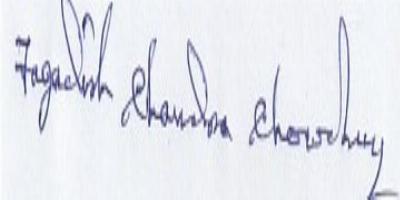 Jagadish Chandra Chowdhury